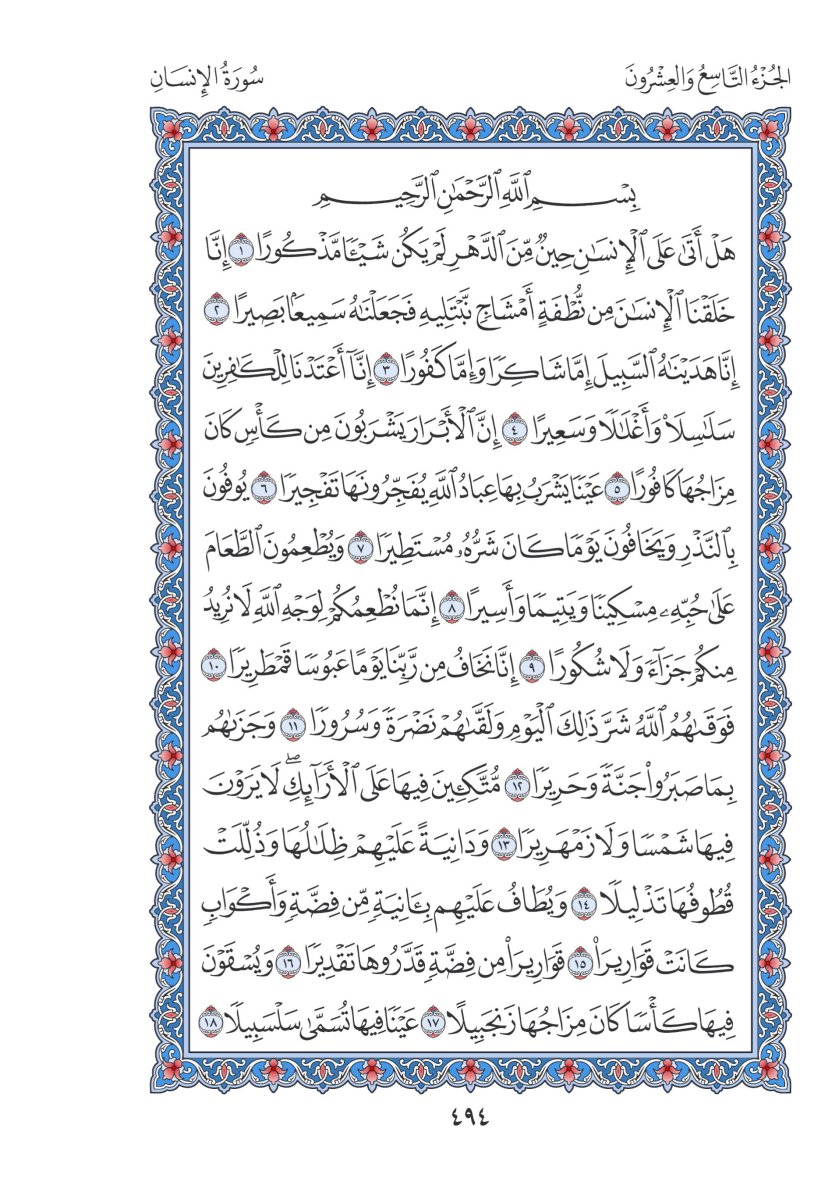 الجُزْءُ التَّاسِعُ وَالعِشْرُونَ سُورَةُ الإِنسَانِ
بِسْمِ ٱللَّهِ ٱلرَّحْمَٰنِ ٱلرَّحِيمِ
هَلْ أَتَىٰ عَلَى ٱلْإِنسَٰنِ حِينٌ مِّنَ ٱلدَّهْرِ لَمْ يَكُن شَيْـًٔا مَّذْكُورًا ١ إِنَّا
خَلَقْنَا ٱلْإِنسَٰنَ مِن نُّطْفَةٍ أَمْشَاجٍ نَّبْتَلِيهِ فَجَعَلْنَٰهُ سَمِيعًۢا بَصِيرًا ٢
إِنَّا هَدَيْنَٰهُ ٱلسَّبِيلَ إِمَّا شَاكِرًا وَإِمَّا كَفُورًا ٣ إِنَّآ أَعْتَدْنَا لِلْكَٰفِرِينَ
سَلَٰسِلَا۟ وَأَغْلَٰلًا وَسَعِيرًا ٤ إِنَّ ٱلْأَبْرَارَ يَشْرَبُونَ مِن كَأْسٍ كَانَ
مِزَاجُهَا كَافُورًا ٥ عَيْنًا يَشْرَبُ بِهَا عِبَادُ ٱللَّهِ يُفَجِّرُونَهَا تَفْجِيرًا ٦ يُوفُونَ
بِٱلنَّذْرِ وَيَخَافُونَ يَوْمًا كَانَ شَرُّهُۥ مُسْتَطِيرًا ٧ وَيُطْعِمُونَ ٱلطَّعَامَ
عَلَىٰ حُبِّهِۦ مِسْكِينًا وَيَتِيمًا وَأَسِيرًا ٨ إِنَّمَا نُطْعِمُكُمْ لِوَجْهِ ٱللَّهِ لَا نُرِيدُ
مِنكُمْ جَزَآءً وَلَا شُكُورًا ٩ إِنَّا نَخَافُ مِن رَّبِّنَا يَوْمًا عَبُوسًا قَمْطَرِيرًا ١٠
فَوَقَىٰهُمُ ٱللَّهُ شَرَّ ذَٰلِكَ ٱلْيَوْمِ وَلَقَّىٰهُمْ نَضْرَةً وَسُرُورًا ١١ وَجَزَىٰهُم
بِمَا صَبَرُوا۟ جَنَّةً وَحَرِيرًا ١٢ مُّتَّكِـِٔينَ فِيهَا عَلَى ٱلْأَرَآئِكِ ۖ لَا يَرَوْنَ
فِيهَا شَمْسًا وَلَا زَمْهَرِيرًا ١٣ وَدَانِيَةً عَلَيْهِمْ ظِلَٰلُهَا وَذُلِّلَتْ
قُطُوفُهَا تَذْلِيلًا ١٤ وَيُطَافُ عَلَيْهِم بِـَٔانِيَةٍ مِّن فِضَّةٍ وَأَكْوَابٍ
كَانَتْ قَوَارِيرَا۠ ١٥ قَوَارِيرَا۟ مِن فِضَّةٍ قَدَّرُوهَا تَقْدِيرًا ١٦ وَيُسْقَوْنَ
فِيهَا كَأْسًا كَانَ مِزَاجُهَا زَنجَبِيلًا ١٧ عَيْنًا فِيهَا تُسَمَّىٰ سَلْسَبِيلًا ١٨
٤٩٤